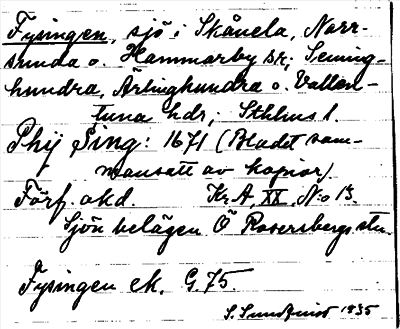 Fysingen, sjö i Skånela, Norr-
sunda o. Hammarby sr; Seming-
hundra, Ärlinghundra o. Vallen-
tuna hdr, Sthlms l.
Phij Sing: 1671 (Bladet sam-
mansatt av kopior)
Förf. okd. Kr.A. XX, N:o 13.
Sjön belägen Ö Rosersbergs stn.
Fysingen ek. G. 75.
S. Sundqvist 1935